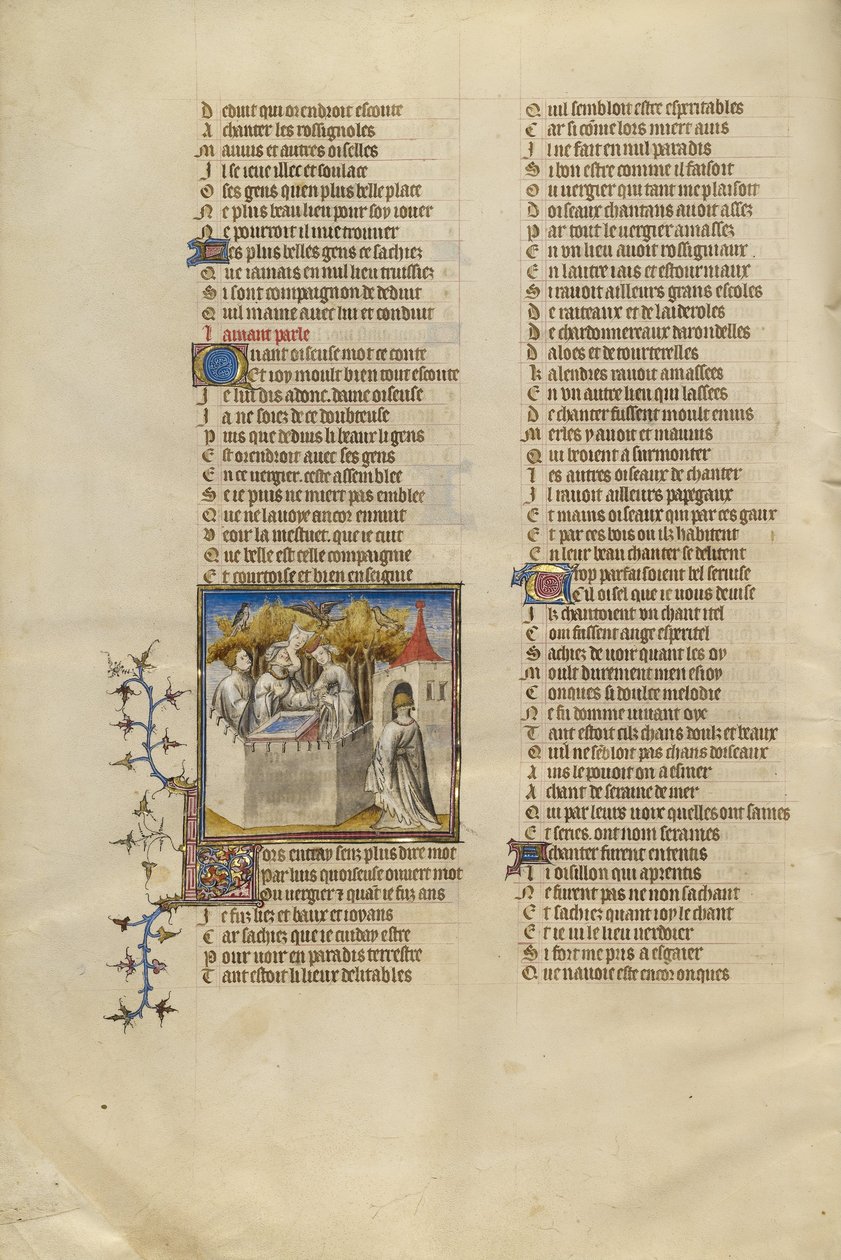 Deduit qui orendroit escoute
A chanter les rossignoles
Mauuis et autres oiselles
Il se ieue illec et soulace
O ses gens quen plus belle place
Ne plus beau lieu pour soy iouer
Ne pourroit il mie trouuer
Les plus belles gens ce sachiez
Que iamais en nul lieu truissiez
Si sont compaignon de deduit
Quil maine auec lui et conduit
lamant parle
Quant oiseuse mot ce conte
Et ioy moult bien tout escoute
Je lui dis adonc. dame oiseuse
Ja ne soiez de ce doubteuse
Puis que deduis li beaux li gens
Est orendroit auec ses gens
En ce vergier. ceste assemblee
Se ie puis ne miert pas emblee
Que ne lauoye encor ennuit
Veoir la mestuet. que ie cuit
Que belle est celle compaignie
Et courtoise et bien enseignie
Lors entray senz plus dire mot
Par luis quoiseuse ouuert mot
Ou vergier ⁊ quāt ie fuz ans
Je fuz liez et baux et ioyans
Car sachiez que ie cuiday estre
Pour uoir en paradis terrestre
Tant estoit li lieux delitables
Quil sembloit estre esperitables
Car si cōme lors miert auis
Il ne fait en nul paradis
Si bon estre comme il faisoit
Ou uergier qui tant me plaisoit
Doiseaux chantans auoit assez
Par tout le uergier amassez
En vn lieu auoit rossigniaux
En lautre iais et estourniaux
Si rauoit ailleurs grans escoles
De raiteaux et de laideroles
De chardonnereaux darondelles
Daloes et de tourterelles
Kalendres rauoit amassees
En vn autre lieu qui lassees
De chanter fussent moult enuis
Merles y auoit et mauuis
Qui beoient a surmonter
Les autres oiseaux de chanter
Il rauoit ailleurs papegaux
Et mains oiseaux qui par ces gaux
Et par ces bois ou ilz habitent
En leur beau chanter se delitent
Trop parfaisoient bel seruise
Cil oisel que ie uous deuise
Ilz chantoient vn chant itel
Com fussent ange esperitel
Sachiez de uoir quant les oy
Moult durement men esioy
Conques si doulce melodie
Ne fu domme uiuant oye
Tant estoit cilz chans doulz et beaux
Quil ne sēbloit pas chans doiseaux
Ains le pouoit on aesmer
A chant de seraine de mer
Qui par leurs uoix quelles ont saines
Et series. ont nom seraines
A chanter furent ententis
Li oisillon qui aprentis
Ne furent pas ne non sachant
Et sachiez quant ioy le chant
Et ie ui le lieu uerdoier
Si fort me pris a esgaier
Que nauoie este encor onques